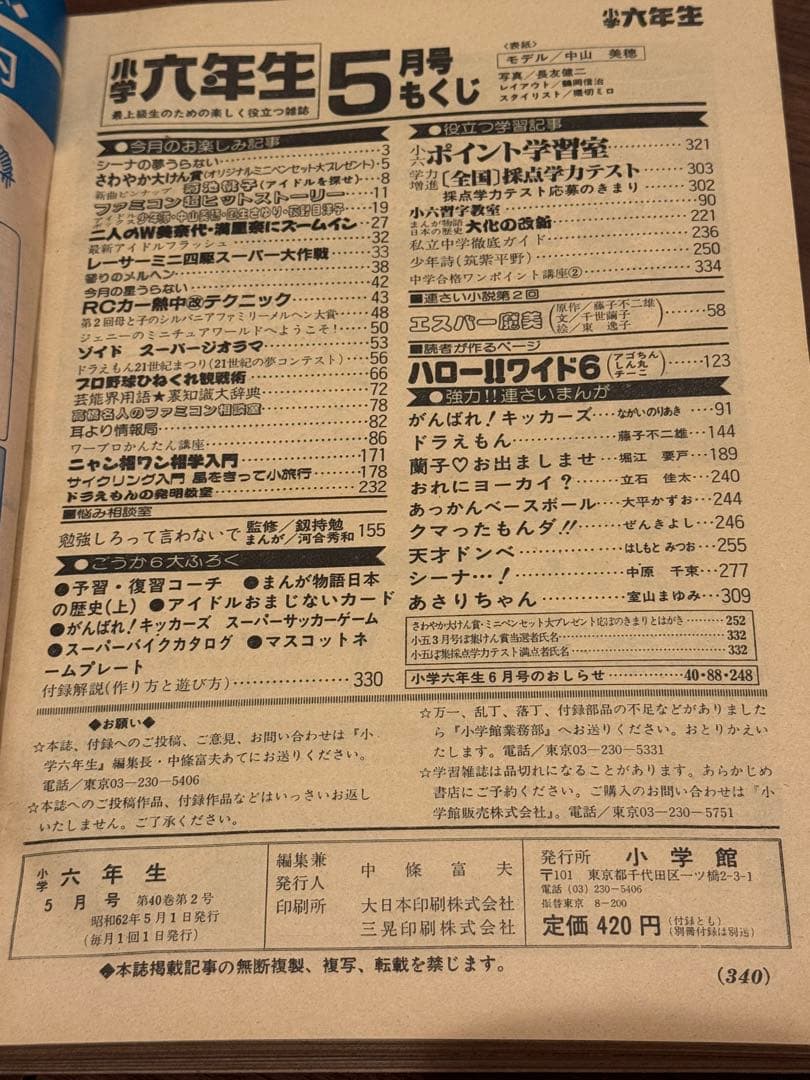 小学六年生
小学六年生
5月号もくじ
最上級生のための楽しく役立つ雑誌
〈表紙〉
モデル／中山 美穂
写真／長友健二
レイアウト／鶴岡信治
スタイリスト／堀切ミロ
●今月のお楽しみ記事
シーナの夢うらない…3
さわやか大けん賞(オリジナルミニペンセット大プレゼント)・5
新曲ピンナップ 菊池桃子(アイドルを探せ)…8
ファミコン超ヒットストーリー…11
アイドルズ 少年隊・中山美穂・芳本美代子…19
二人のW美奈代・満里奈にズームイン…27
最新アイドルフラッシュ…32
レーサーミニ四駆スーパー大作戦…33
香りのメルヘン…38
今月の星うらない…42
RCカー熱中改テクニック…43
第2回母と子のシルバニアファミリーメルヘン大賞…48
ジェニーのミニチュアワールドへようこそ!…50
ゾイド スーパージオラマ…53
ドラえもん21世紀まつり(21世紀の夢コンテスト)…56
プロ野球ひねくれ観戦術…66
芸能界用語★裏知識大辞典…72
高橋名人のファミコン相談室…78
耳より情報局…82
ワープロかんたん講座…86
ニャン相ワン相学入門…171
サイクリング入門 風をきって小旅行…178
ドラえもんの発明教室…232
■悩み相談室
勉強しろって言わないで 監修／釼持勉 まんが／河合秀和 155
●ごうか6大ふろく
●予習・復習コーチ ●まんが物語日本
の歴史(上) ●アイドルおまじないカード
●がんばれ!キッカーズ スーパーサッカーゲーム
●スーパーバイクカタログ ●マスコットネ
ームプレート
付録解説(作り方と遊び方)…330
●役立つ学習記事
小六ポイント学習室…321
学力増進[全国]採点学力テスト…303
採点学力テスト応募のきまり…302
小六習字教室…90
まんが物語日本の歴史 大化の改新…221
私立中学徹底ガイド…236
少年詩(筑紫平野)…250
中学合格ワンポイント講座②…334
■連さい小説第2回
エスパー魔美(原作／藤子不二雄 文／千世繭子 絵／東 逸子)…58
■読者が作るページ
ハロー!!ワイド6(アゴちん しん丸 チーこ)…123
●強力!!連さいまんが
がんばれ!キッカーズ…ながいのりあき…91
ドラえもん…藤子不二雄…144
蘭子♡お出ましませ…堀江 要戸…189
おれにヨーカイ?…立石 佳太…240
あっかんベースボール…大平かずお…244
クマったもんダ!!…ぜんきよし…246
天才ドンベ…はしもと みつお…255
シーナ…!…中原 千束…277
あさりちゃん…室山まゆみ…309
さわやか大けん賞・ミニペンセット大プレゼント応ぼのきまりとはがき…252
小五3月号ぼ集けん賞当選者氏名…332
小五ぼ集採点学力テスト満点者氏名…332
小学六年生6月号のおしらせ…40・88・248
◆お願い◆
☆本誌、付録へのご投稿、ご意見、お問い合わせは『小
学六年生』編集長・中條富夫あてにお送りください。
電話／東京03―230―5406
☆本誌へのご投稿作品、付録作品などはいっさいお返し
いたしません。ご了承ください。
☆万一、乱丁、落丁、付録部品の不足などがありました
ら『小学館業務部』へお送りください。おとりかえい
たします。電話／東京03―230―5331
☆学習雑誌は品切れになることがあります。あらかじめ
書店にご予約ください。ご購入のお問い合わせは『小
学館販売株式会社』。電話／東京03―230―5751
小学六年生
5月号 第40巻第2号
昭和62年5月1日発行
(毎月1回1日発行)
編集兼
発行人 中條富夫
印刷所 大日本印刷株式会社
三晃印刷株式会社
発行所 小学館
〒101 東京都千代田区一ツ橋2-3-1
電話(03)230-5406
振替東京 8-200
定価420円(付録とも)(別冊付録は別送)
◆本誌掲載記事の無断複製、複写、転載を禁じます。
(340)